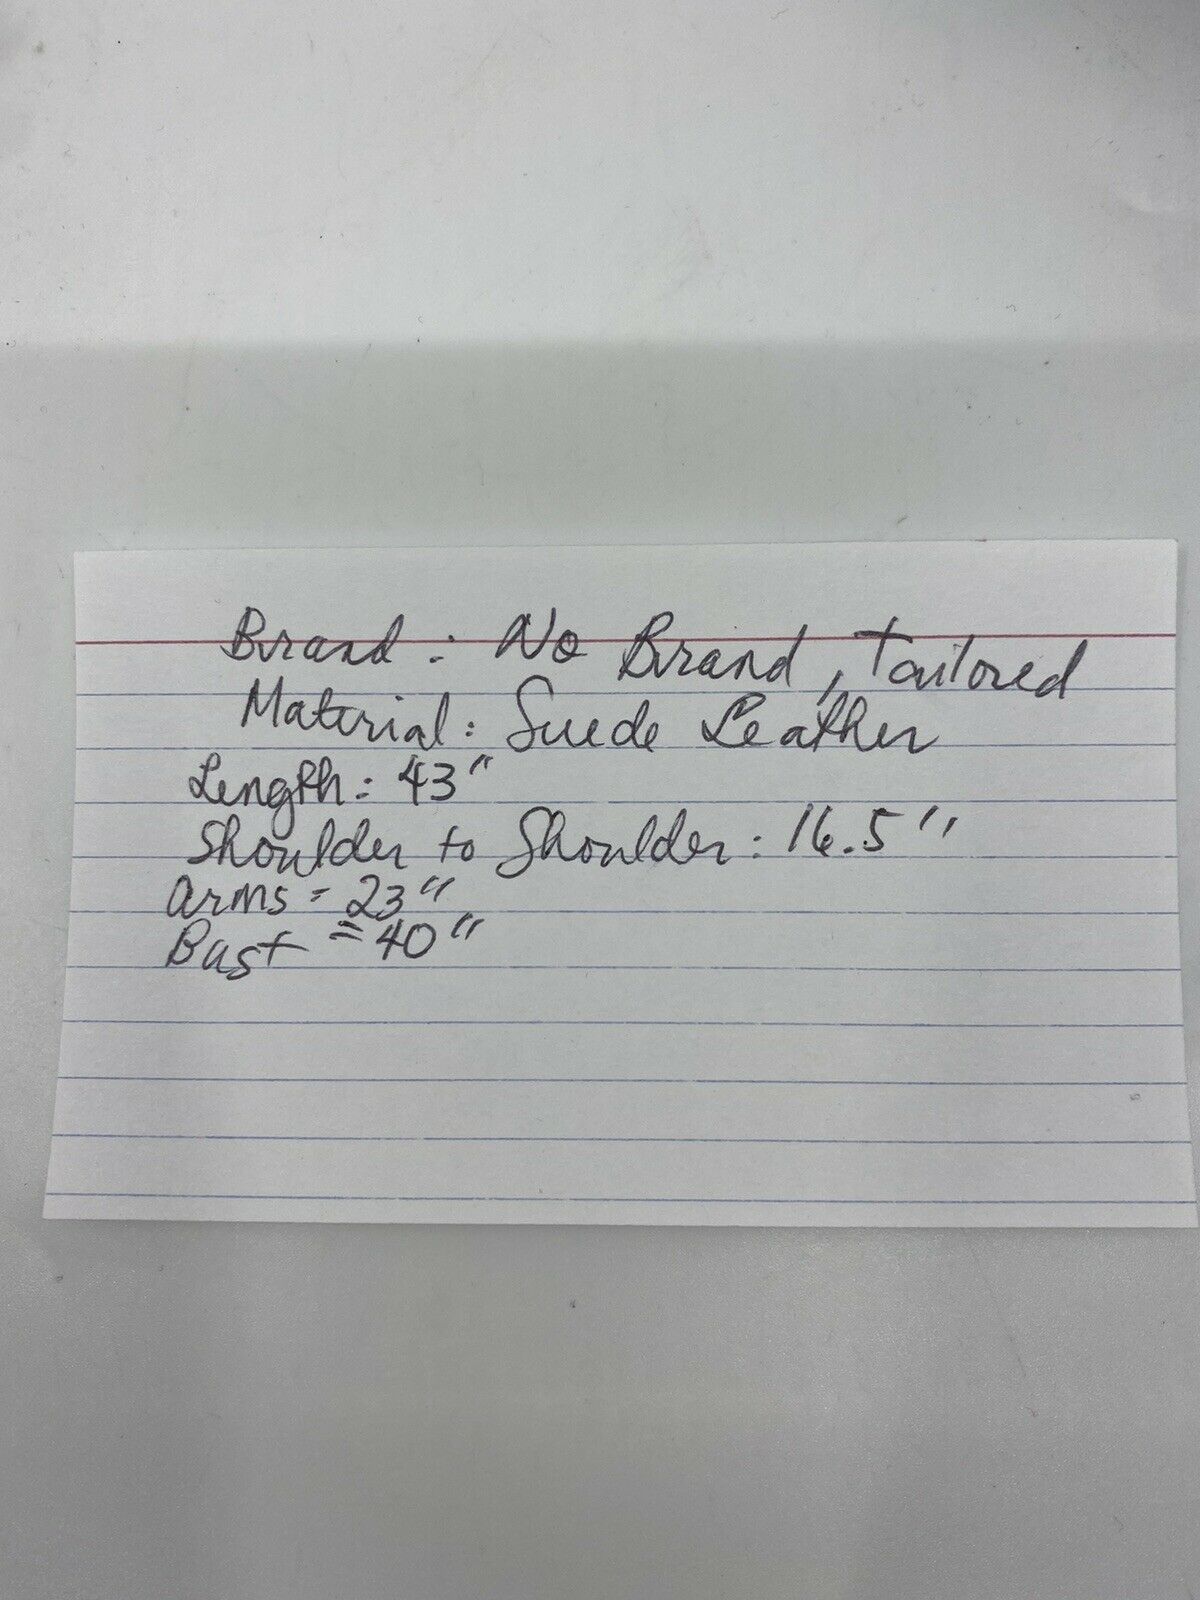 Brand: No Brand, Tailored
Material: Suede Leather
Length: 43"
Shoulder to Shoulder: 16.5"
Arms = 23"
Bust = 40"